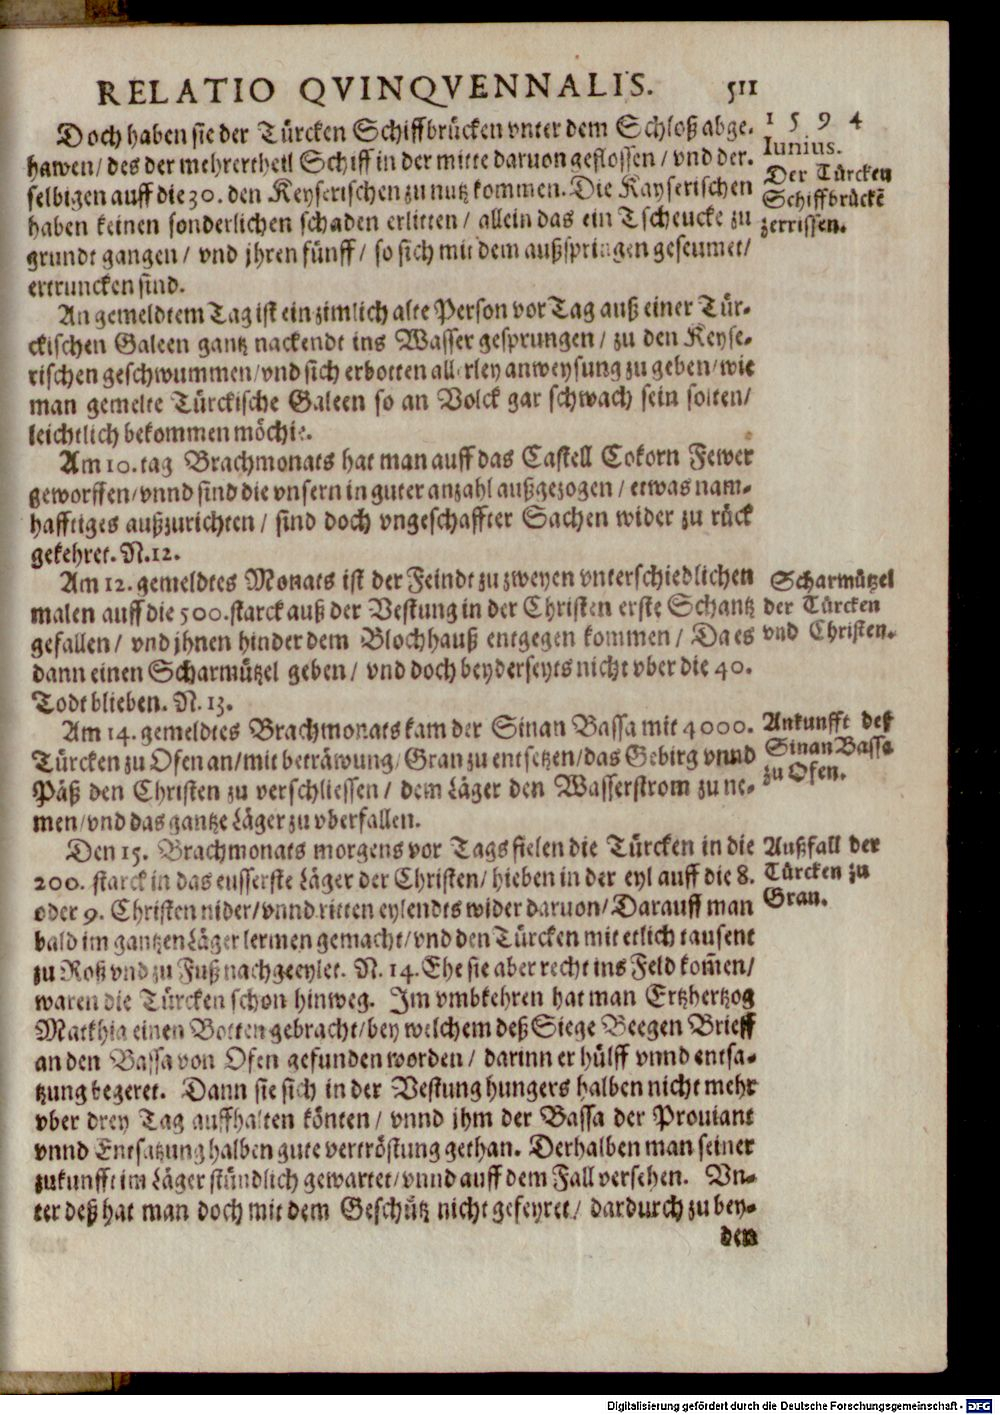 RELATIO QVINQVENNALIS. 511
Doch haben sie der Türcken Schiffbrücken vnter dem Schloß abge-
hawen/ des der mehrertheil Schiff in der mitte daruon geflossen/ vnd der-
selbigen auff die 30. den Keyserischen zu nutz kommen. Die Kayserischen
haben keinen sonderlichen schaden erlitten/ allein das ein Tscheucke zu
grundt gangen/ vnd jhren fünff/ so sich mit dem außspringen geseumet/
ertruncken sind.
1594
Iunius.
Der Türcken
Schiffbrückẽ
zerrissen.
An gemeldtem Tag ist ein zimlich alte Person vor Tag auß einer Tür-
ckischen Galeen gantz nackendt ins Wasser gesprungen/ zu den Keyse-
rischen geschwummen/ vnd sich erbotten allerley anweysung zu geben/ wie
man gemelte Türckische Galeen so an Volck gar schwach sein solten/
leichtlich bekommen möchte.
Am 10. tag Brachmonats hat man auff das Castell Cokorn Fewer
geworffen/ vnnd sind die vnsern in guter anzahl außgezogen/ etwas nam-
hafftiges außzurichten/ sind doch vngeschaffter Sachen wider zu rück
gekehret. N. 12.
Am 12. gemeldtes Monats ist der Feindt zu zweyen vnterschiedlichen
malen auff die 500. starck auß der Vestung in der Christen erste Schantz
gefallen/ vnd jhnen hinder dem Blochhauß entgegen kommen/ Da es
dann einen Scharmützel geben/ vnd doch beyderseyts nicht vber die 40.
Todt blieben. N. 13.
Scharmützel
der Türcken
vnd Christen.
Am 14. gemeldtes Brachmonats kam der Sinan Bassa mit 4000.
Türcken zu Ofen an/ mit beträwung/ Gran zu entsetzen/ das Gebirg vnnd
Päß den Christen zu verschliessen/ dem Läger den Wasserstrom zu ne-
men/ vnd das gantze Läger zu vberfallen.
Ankunfft deß
Sinan Bassa
zu Ofen.
Den 15. Brachmonats morgens vor Tags fielen die Türcken in die
200. starck in das eusserste Läger der Christen/ hieben in der eyl auff die 8.
oder 9. Christen nider/ vnnd ritten eylendts wider daruon/ Darauff man
bald im gantzen Läger lermen gemacht/ vnd den Türcken mit etlich tausent
zu Roß vnd zu Fuß nachgeeylet. N. 14. Ehe sie aber recht ins Feld kom̃en/
waren die Türcken schon hinweg. Im vmbkehren hat man Ertzhertzog
Matthia einen Botten gebracht/ bey welchem deß Siege Beegen Brieff
an den Bassa von Ofen gefunden worden/ darinn er hülff vnnd entsa-
tzung begeret. Dann sie sich in der Vestung hungers halben nicht mehr
vber drey Tag auffhalten könten/ vnnd jhm der Bassa der Prouiant
vnnd Entsatzung halben gute vertröstung gethan. Derhalben man seiner
zukunfft im Läger stündlich gewartet/ vnnd auff dem Fall versehen. Vn-
ter deß hat man doch mit dem Geschütz nicht gefeyret/ dardurch zu bey-
den
Außfall der
Türcken zu
Gran.
Digitalisierung gefördert durch die Deutsche Forschungsgemeinschaft - DFG